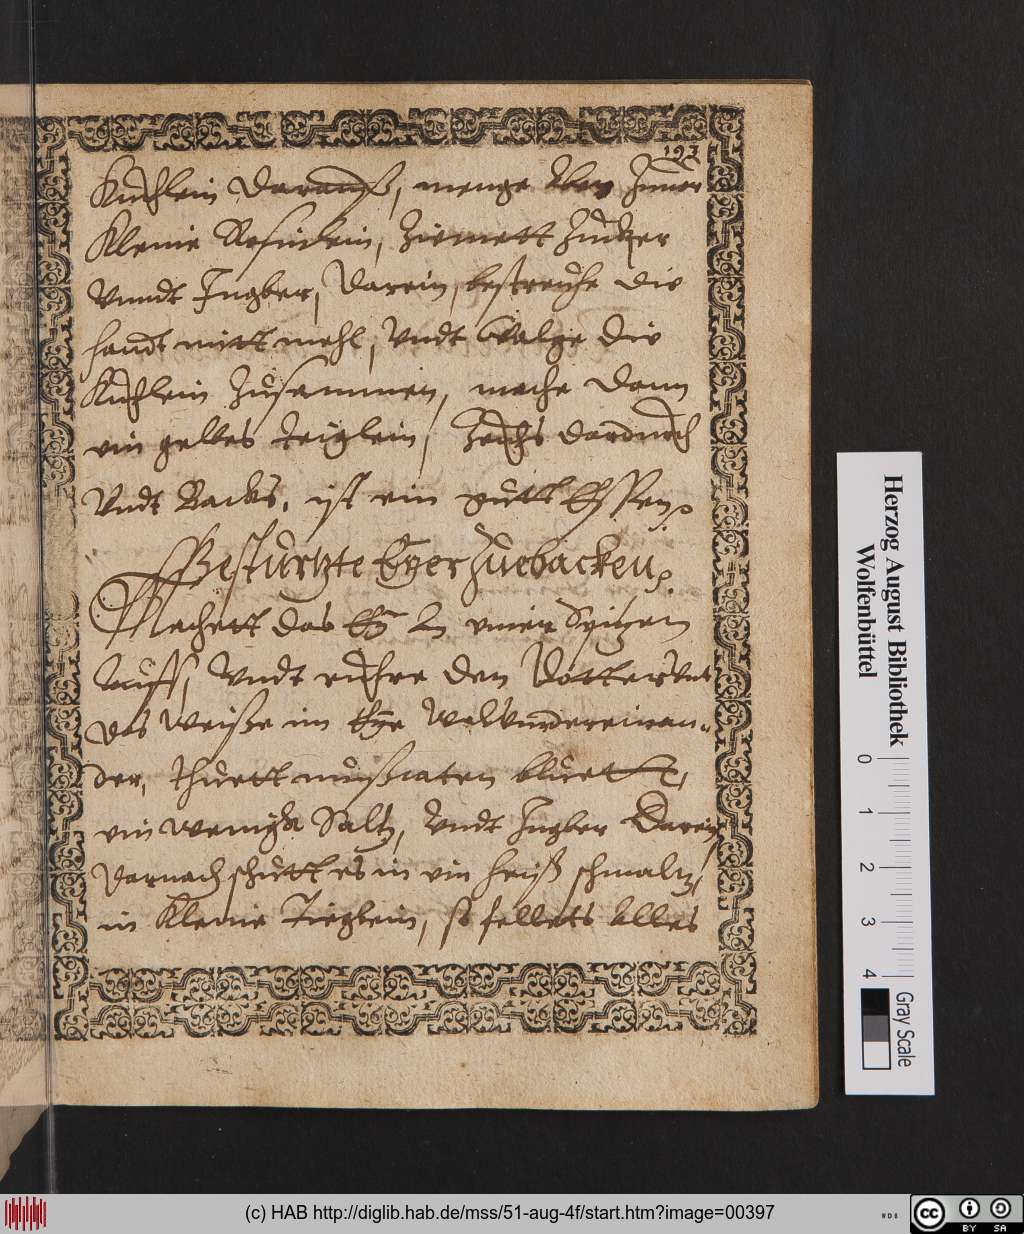 197
Kuchlein Darauß, menge aber Jmmer
Kleine Rosinlein, Zimmett Zucker
Vnndt Ingber, Darein, bestreuche die
handt mitt mehl, Vndt Walge die
Kuchlein Zusammen, mache dann
ein gelbes teiglein, Zeichs dardurch
Vndt Backs, ist ein guett Essen
Gestürtzte Eyer Zuebacken
Machett das Ey an einer Spitzen
auff, Vndt rühre den Dotter Vnd
das Weiße im Eye Wol Vndereinan-
der, thuett mußcaten bluett,
ein wenig Saltz, Vndt Ingber Darein
darnach schütt es in ein heiß schmaltz,
in kleine Tieglein, so fellets alles
Herzog August Bibliothek
Wolfenbüttel
0 1 2 3 4
Gray Scale
(c) HAB http://diglib.hab.de/mss/51-aug-4f/start.htm?image=00397
WDB
cc BY SA